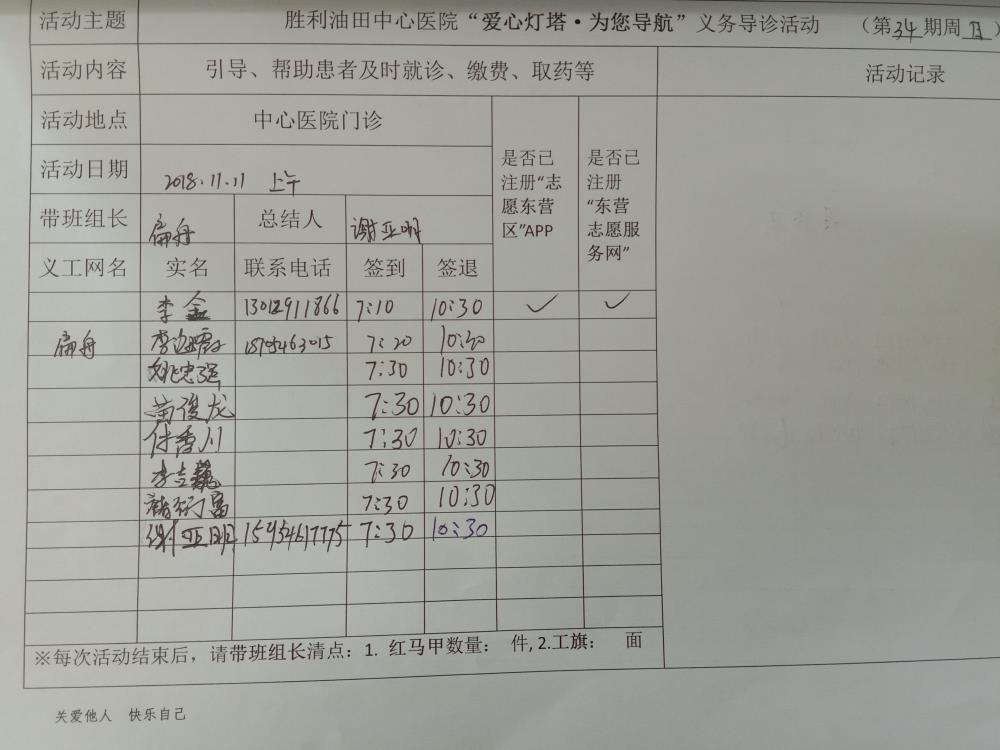 活动主题 胜利油田中心医院“爱心灯塔·为您导航”义务导诊活动 （第34期周日）
活动内容 引导、帮助患者及时就诊、缴费、取药等 活动记录
活动地点 中心医院门诊
活动日期 2018.11.11 上午
是否已注册“志愿东营区”APP
是否已注册“东营志愿服务网”
带班组长 扁舟 总结人 谢亚明
义工网名 实名 联系电话 签到 签退
李金 13012911866 7:10 10:30 ✓ ✓
扁舟 7:20 10:30
姚忠强 7:30 10:30
苗俊龙 7:30 10:30
付香川 7:30 10:30
李吉巍 7:30 10:30
7:30 10:30
谢亚明 15954617775 7:30 10:30
※每次活动结束后，请带班组长清点：1. 红马甲数量： 件, 2.工旗： 面
关爱他人 快乐自己